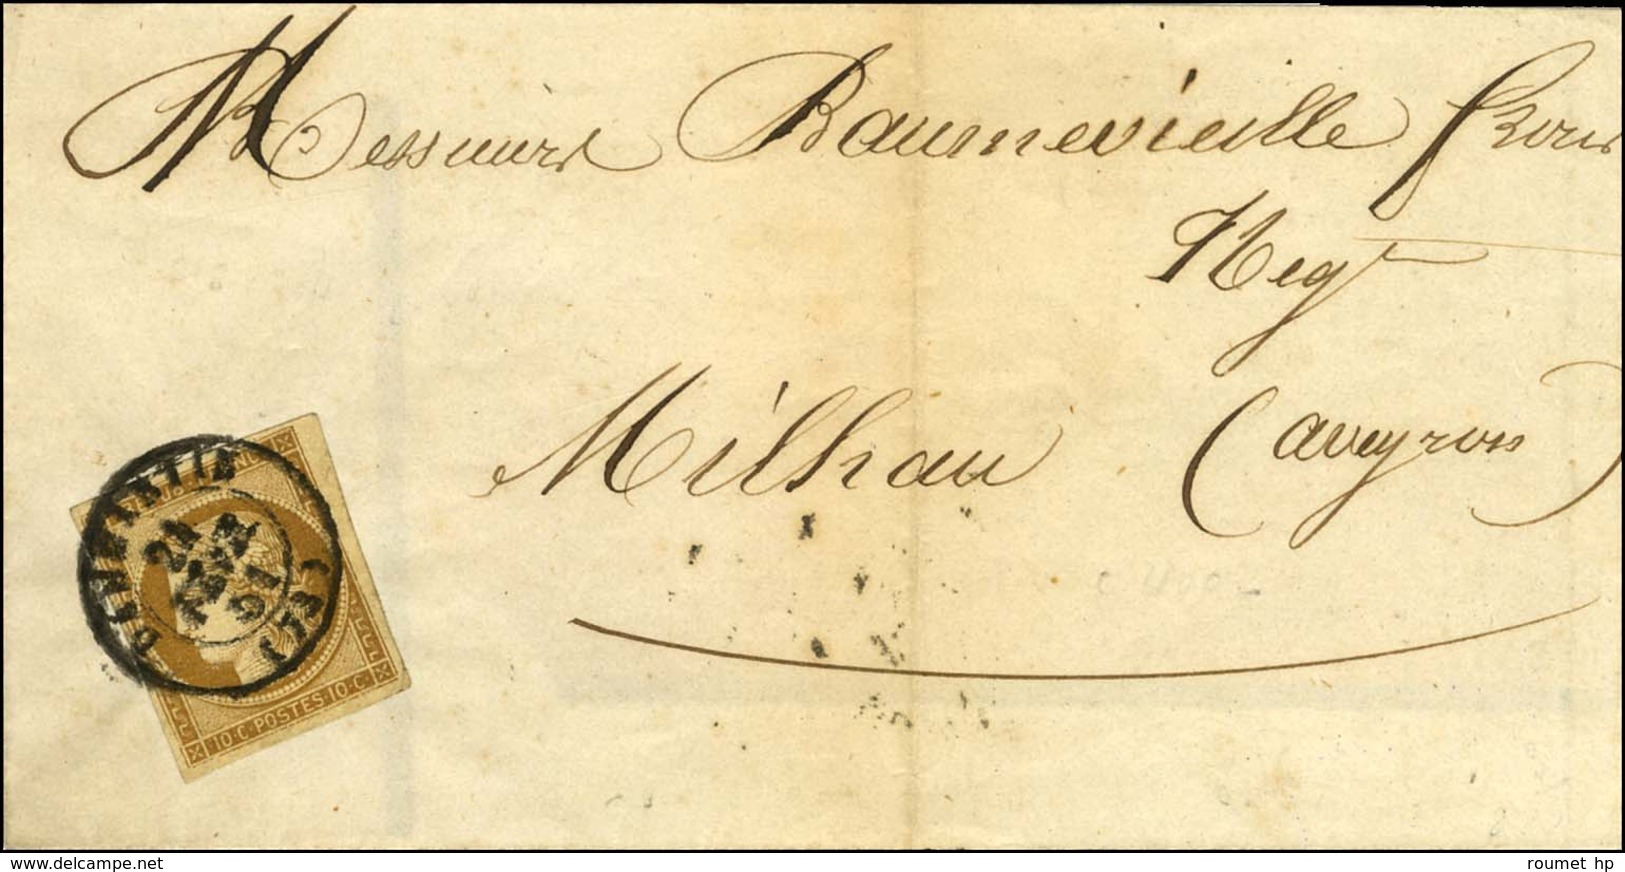 Messieurs Baumevieille frères
Negt
Milhau (aveyron)
10·C·POSTES·10·C
www.delcampe.net
roumet hp